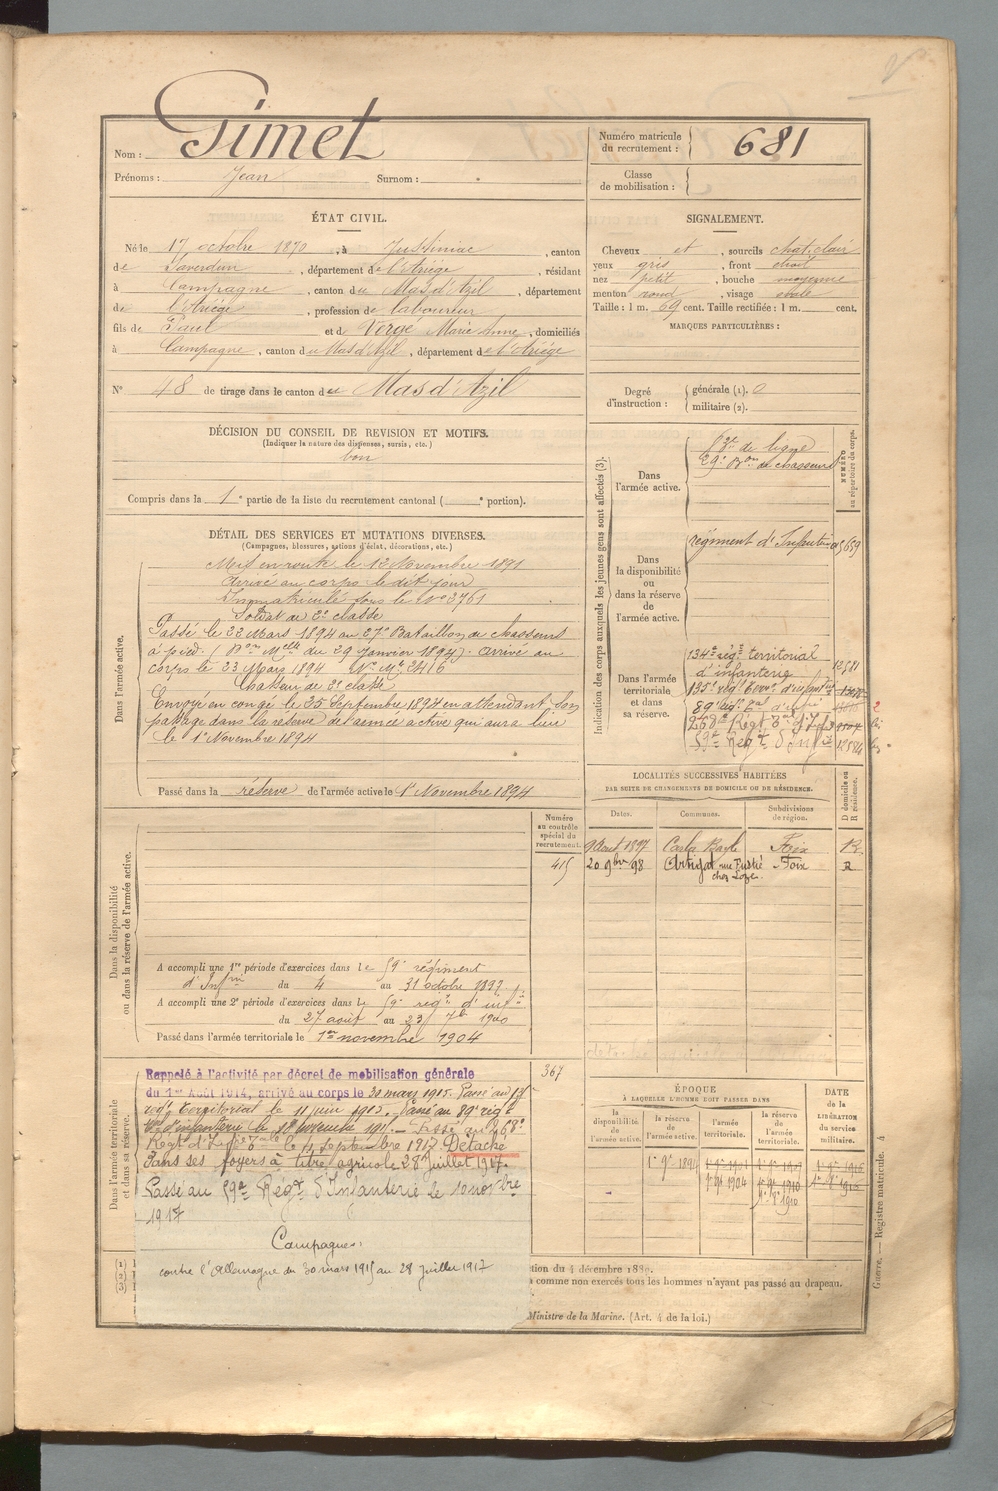 Nom : Gimet
Prénoms : Jean Surnom : .
Numéro matricule du recrutement : 681
Classe de mobilisation :
ÉTAT CIVIL.
Né le 17 octobre 1870, à Justiniac, canton
de Saverdun, département de l'Ariège, résidant
à Campagne, canton du Mas d'Azil, département
de l'Ariège, profession de laboureur
fils de Paul et de Verge Marie Anne, domiciliés
à Campagne, canton du Mas d'Azil, département de l'Ariège
N° 48 de tirage dans le canton du Mas d'Azil
SIGNALEMENT.
Cheveux et, sourcils chat. clair
yeux gris, front étroit
nez petit, bouche moyenne
menton rond, visage ovale
Taille : 1 m. 69 cent. Taille rectifiée : 1 m. cent.
MARQUES PARTICULIÈRES :
Degré d'instruction : générale (1). 0
militaire (2).
DÉCISION DU CONSEIL DE REVISION ET MOTIFS.
(Indiquer la nature des dispenses, sursis, etc.)
bon
Compris dans la 1e partie de la liste du recrutement cantonal ( e portion).
DÉTAIL DES SERVICES ET MUTATIONS DIVERSES.
(Campagnes, blessures, actions d'éclat, décorations, etc.)
Dans l'armée active.
Mis en route le 12 Novembre 1891
Arrivé au corps le dit jour
Immatriculé sous le N° 3761
Soldat de 2e classe
Passé le 22 Mars 1894 au 27e Bataillon de chasseurs
à pied. (Don Melle du 29 Janvier 1894). Arrivé au
corps le 23 Mars 1894 N° Mle 2416
Chasseur de 2e classe
Envoyé en congé le 25 Septembre 1894 en attendant son
passage dans la réserve de l'armée active qui aura lieu
le 1er Novembre 1894
Passé dans la réserve de l'armée active le 1er Novembre 1894
Indication des corps auxquels les jeunes gens sont affectés (3).
NUMÉRO au répertoire du corps.
Dans l'armée active.
de ligne
Bon de chasseurs
Dans la disponibilité ou dans la réserve de l'armée active.
régiment d'Infanterie
Dans l'armée territoriale et dans sa réserve.
134e régt territorial
d'infanterie 12581
135e régt terral d'infanterie
89e Régt tal d'infie
268e Régt Tal d'Infie
59e Régt d'Infie
LOCALITÉS SUCCESSIVES HABITÉES
PAR SUITE DE CHANGEMENTS DE DOMICILE OU DE RÉSIDENCE.
D domicile ou R résidence.
Dates. Communes. Subdivisions de région.
9 Aout 1897 Carla Bayle Foix R.
20 9bre 98 Artigat Foix R
Dans la disponibilité ou dans la réserve de l'armée active.
Numéro au contrôle spécial du recrutement.
415
A accompli une 1re période d'exercices dans le 59e régiment
d'Infie du 4 au 31 octobre 1897.
A accompli une 2e période d'exercices dans le 59e régt d'infie
du 27 août au 23 7bre 1900
Passé dans l'armée territoriale le 1er novembre 1904
Dans l'armée territoriale et dans sa réserve.
367
Rappelé à l'activité par décret de mobilisation générale
du 1er Août 1914, arrivé au corps le 30 mars 1915. Passé au 135
régt Territorial le 11 juin 1915. Passé au 89e régt
Tal d'infanterie le Passé au 268e
Régt d'Infie Tale le 4 septembre 1917. Détaché
dans ses foyers à titre agricole 28 juillet 1917.
Passé au 59e Régt d'Infanterie le 10 novbre
1917
Campagnes :
contre l'Allemagne du 30 mars 1915 au 28 juillet 1917
ÉPOQUE
À LAQUELLE L'HOMME DOIT PASSER DANS
DATE de la LIBÉRATION du service militaire.
la disponibilité de l'armée active. la réserve de l'armée active. l'armée territoriale. la réserve de l'armée territoriale.
1er 9bre 1894 1er 9bre 1904 1er 9bre 1910
(1)
(2)
(3)
tion du 4 décembre 1889.
comme non exercés tous les hommes n'ayant pas passé au drapeau.
Ministre de la Marine. (Art. 4 de la loi.)
Guerre. — Registre matricule. 4